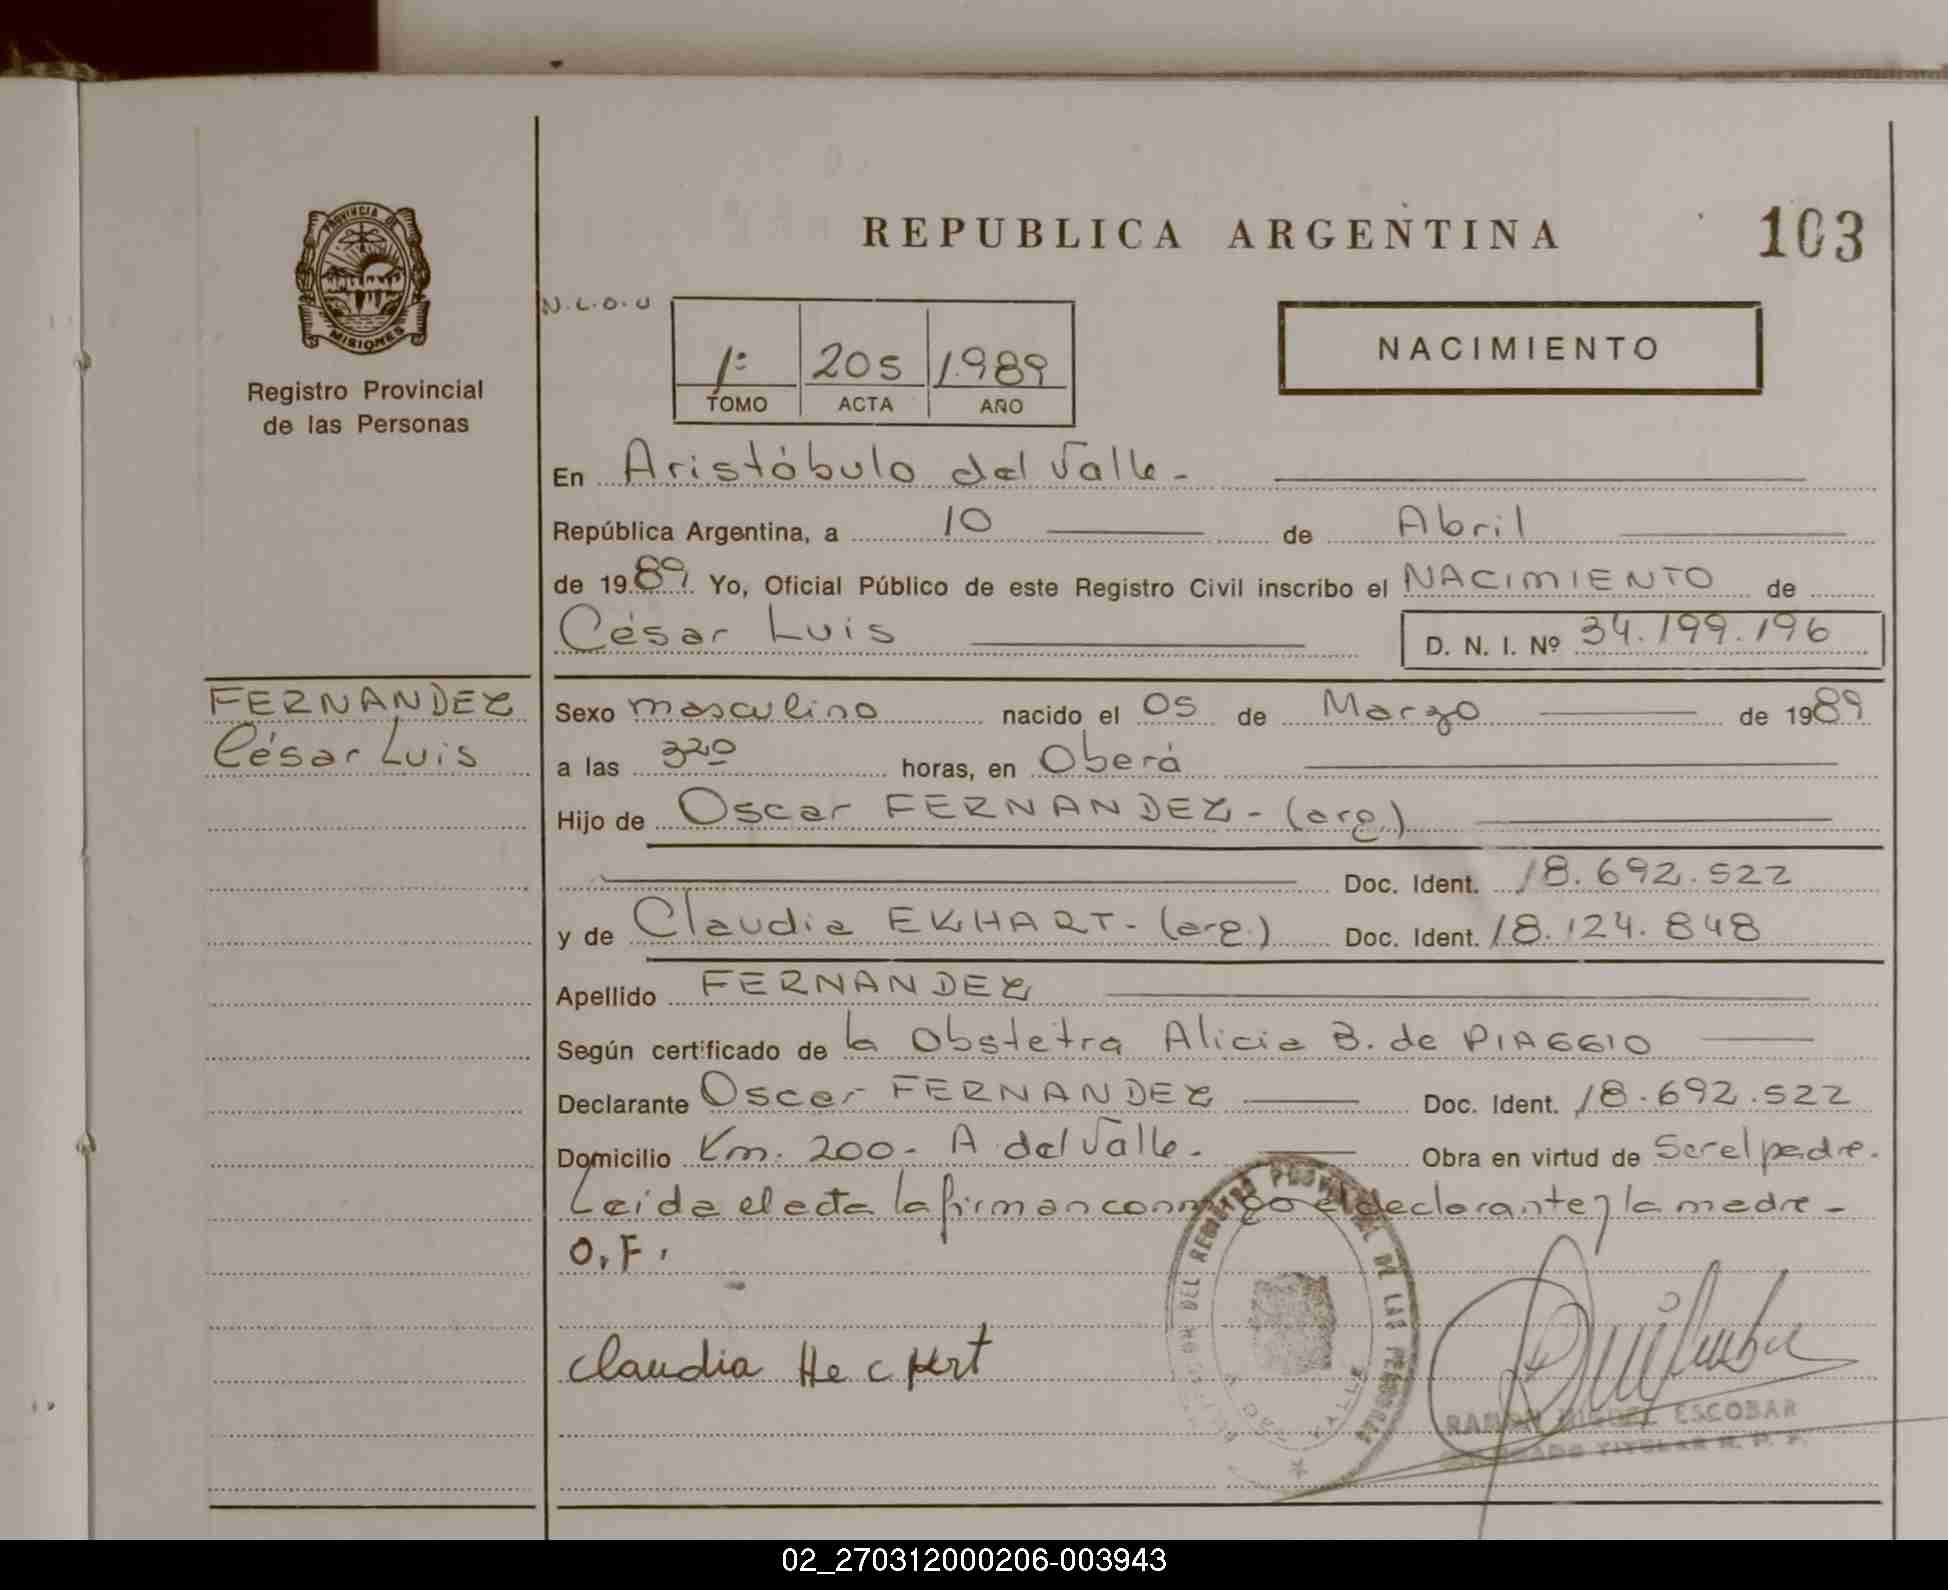 PROVINCIA DE
MISIONES
Registro Provincial
de las Personas
FERNANDEZ
César Luis
REPUBLICA ARGENTINA
103
N.L.O.U
1º 205 1989
TOMO ACTA AÑO
NACIMIENTO
En Aristóbulo del Valle-
República Argentina, a 10 de Abril
de 1989 Yo, Oficial Público de este Registro Civil inscribo el NACIMIENTO de
César Luis D. N. I. Nº 34.199.196
Sexo masculino nacido el 05 de Marzo de 1989
a las 320 horas, en Oberá
Hijo de Oscar FERNANDEZ- (arg.)
Doc. Ident. 18.692.522
y de Claudia EKHART- (arg.) Doc. Ident. 18.124.848
Apellido FERNANDEZ
Según certificado de la Obstetra Alicia B. de PIAGGIO
Declarante Oscar FERNANDEZ Doc. Ident. 18.692.522
Domicilio Km. 200- A del Valle. Obra en virtud de Ser el padre.
Leida el acta la firman conmigo el declarante y la madre-
O.F.
Claudia
REGISTRO PROVINCIAL DE LAS PERSONAS
VALLE
RAMON MIGUEL ESCOBAR
02_270312000206-003943